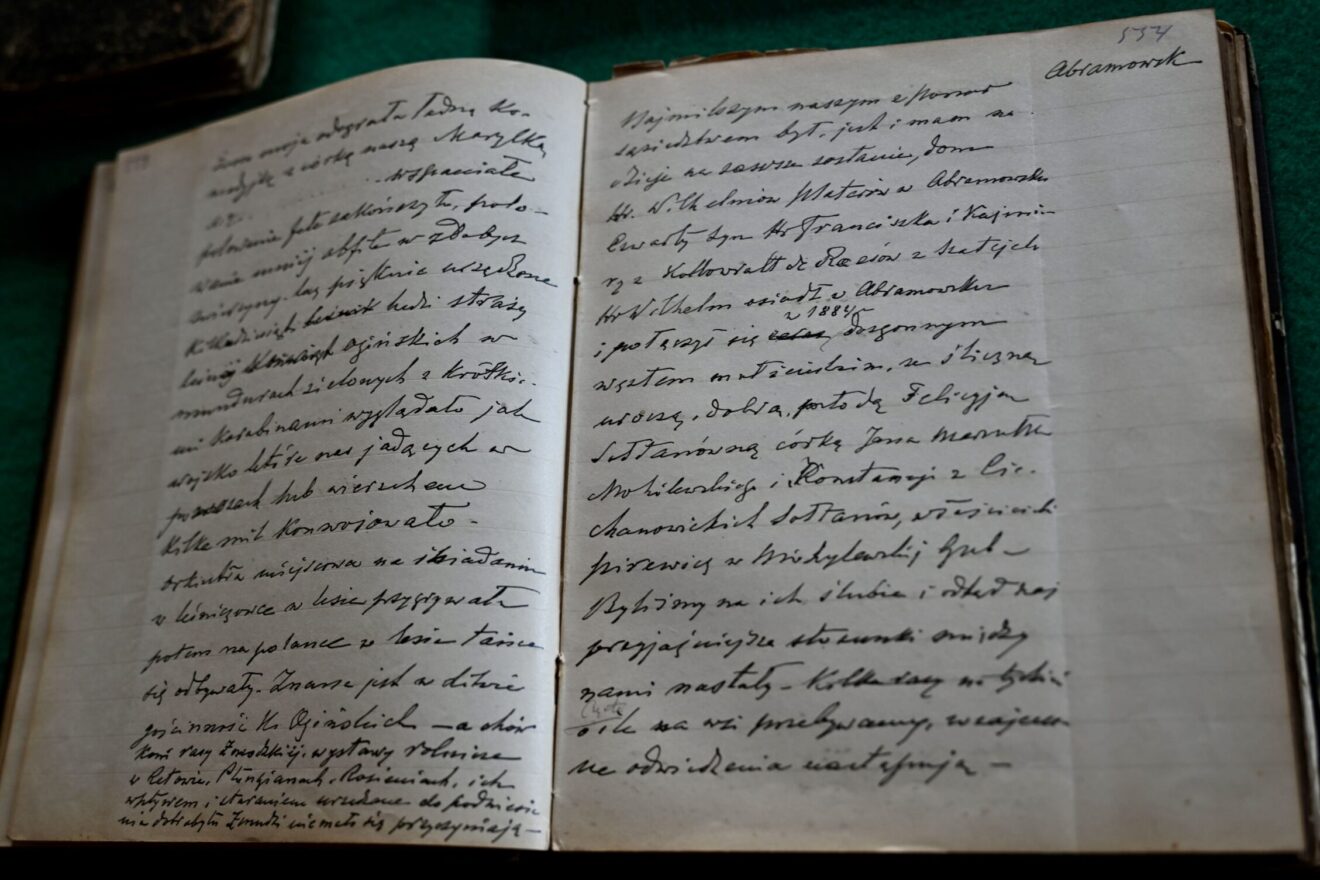 Żona moja odegrała ładną Ko-
medyjkę z córką naszą Marylką,
wspaniałe
polowania
wanie mniej obfite w zdobycz
zwierzyny. Lasy pięknie urządzone
Kilkadziesiąt ludzi straży
leśnej Ogińskich w
mundurach zielonych z krótkie-
mi karabinami wyglądało jak
wojsko które nas jadących w
powozach lub wierzchem
Kilka mil Konwojowało -
orkiestra miejscowa na śniadaniu
w leśniczówce w lesie przygrywała
potem na polance w lesie tańce
się odbywały. Znana jest w Litwie
gościnność Ks. Ogińskich - a chów
Koni rasy Żmudzkiej, wystawy rolnicze
w Retowie, Płungianach, Rosieniach, ich
wpływem i staraniem urządzone do podniesie-
nia dobrobytu Żmudzi niemało się przyczyniają -
554
Abramowsk
Najmilszym naszym
sąsiedztwem był, jest i mam na-
dzieję na zawsze zostanie, dom
Hr. Wilhelmów Platerów w Abramowsku
Czwarty syn Hr Franciszka i Kazimie-
ry z Szatejek
Hr Wilhelm osiadł w Abramowsku
w 1884 r
i połączył się dozgonnym
węzłem małżeńskim, ze śliczną
uroczą, dobrą, młodą Felicyją
Sołtanówną córką Jana Marszałka
Mohilewskiego i Konstancyi z Cie-
chanowickich Sołtanów, właścicieli
w Mohylewskiej Gub -
Byliśmy na ich ślubie i odtąd naj
przyjaźniejsze stosunki między
nami nastały - Kilka razy na tydzień
o ile na wsi przebywamy, wzajem-
ne odwiedzenia następują -